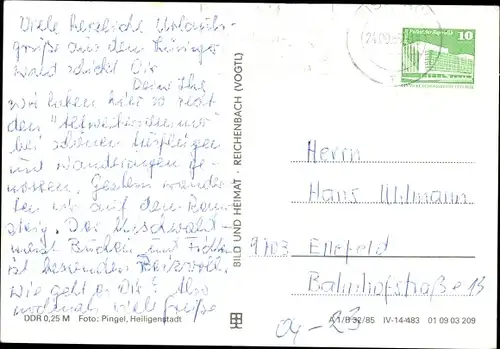 Viele herzliche Urlaubs-
grüße aus dem Thüringer
wald schickt Dir
Deine
wir haben hier so recht
den "Altweibersommer"
bei schönen Ausflügen
und Wanderungen ge-
nossen. Gestern wander-
ten wir auf dem Renn-
steig. Der
meist Buchen und Fichten
ist besonders reizvoll.
Wie geht es Dir? Also
nochmals viele Grüße
DDR 0,25 M Foto: Pingel, Heiligenstadt
BILD UND HEIMAT · REICHENBACH (VOGTL)
10
Herrn
Hans Ullmann
9703 Ellefeld
Bahnhofstraße 13
A 1/B 32/85 IV-14-483 01 09 03 209
04-23